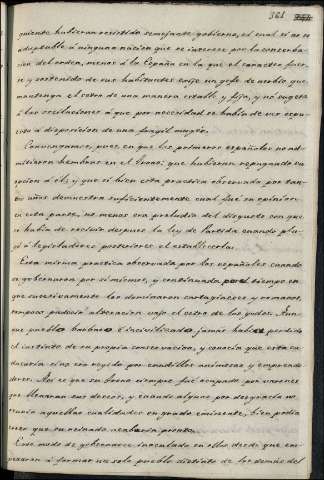 361
guiente hubieran resistido semejante gobierno, el cual si no es
adaptable á ninguna nacion que se interese por la conserba-
cion del orden, menos á la España en la que el caracter fuer-
te y sostenido de sus habitantes exije un gefe de nerbio que
mantenga el cetro de una manera estable y fija, y no sugeta
á las oscilaciones á que por necesidad se habia de ver espu-
esto á disposicion de una fragil muger.
Convengamos, pues, en que los primeros españoles no ad-
mitieron hembras en el trono: que hubieran repugnado su
opcion á él, y que si bien esta practica observada por tan-
tos años demuestra suficientemente cual fue su opinion
en esta parte, no menos era preludio del disgusto con que
se habia de recibir despues la ley de Partida cuando plu-
go á legisladores posteriores el establecerla.
Esta misma practica observada por los españoles cuando
se gobernaron por sí mismos, y continuada por el tiempo en
que sucesivamente los dominaron cartagineses y romanos,
tampoco padeció alteracion bajo el cetro de los godos. Aun-
que pueblo barbaro é incivilizado jamás habia perdido
el instinto de su propia conservacion, y conocia que esta ca-
ducaria sino era regido por caudillos animosos y emprende-
dores. Asi es que su trono siempre fué ocupado por varones
que llenaran sus deseos, y cuando alguno por desgracia no
reunia aquellas cualidades en grado eminente, bien podia
decirse que su reinado acabaria pronto.
Este modo de gobernarse inoculado en ellos desde que em-
pezaron á formar un solo pueblo distinto de los demás del